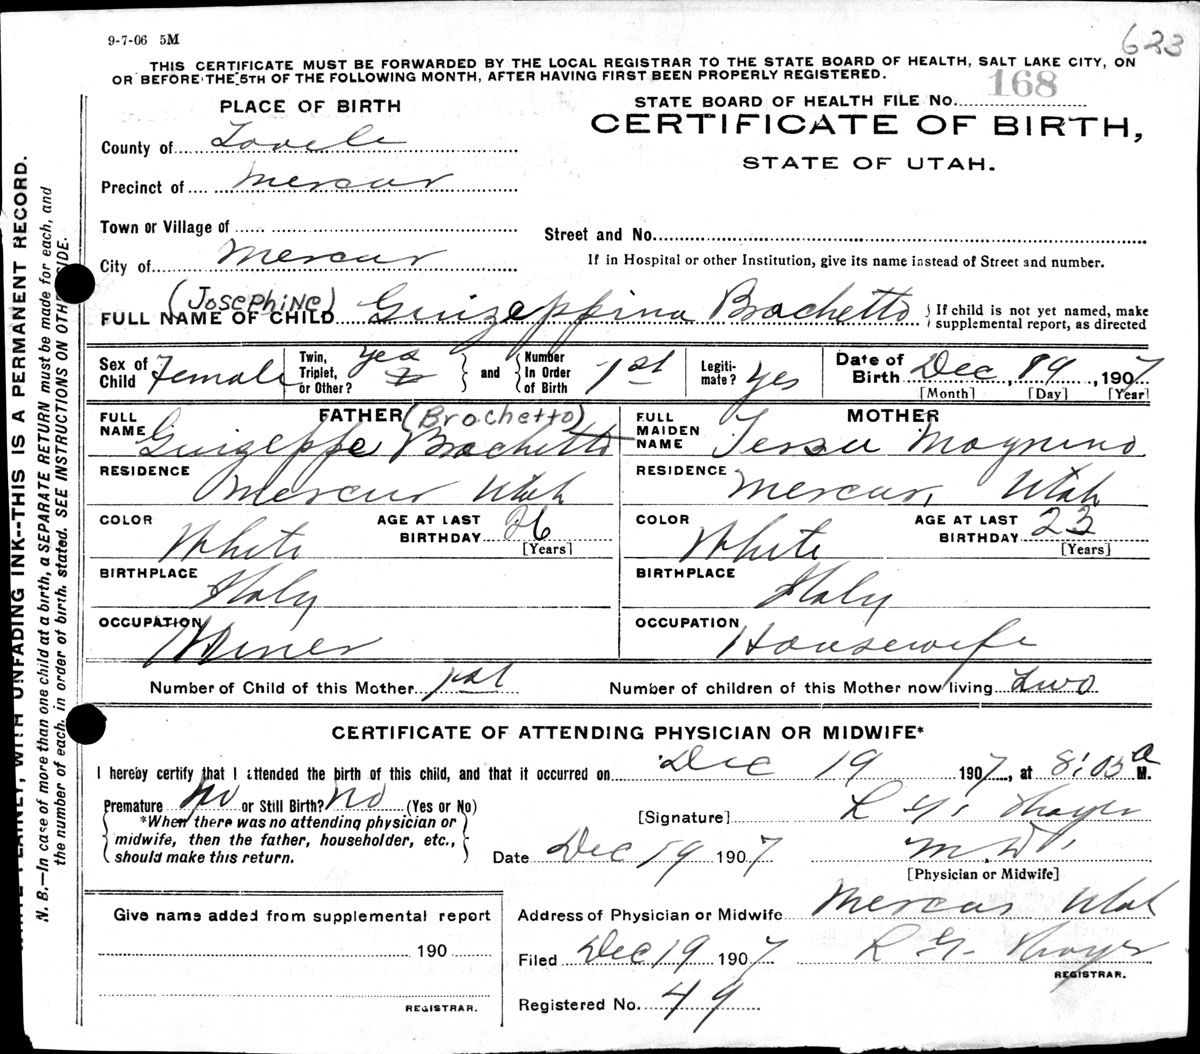 9-7-06 5M
623
THIS CERTIFICATE MUST BE FORWARDED BY THE LOCAL REGISTRAR TO THE STATE BOARD OF HEALTH, SALT LAKE CITY, ON
OR BEFORE THE 5TH OF THE FOLLOWING MONTH, AFTER HAVING FIRST BEEN PROPERLY REGISTERED.
STATE BOARD OF HEALTH FILE NO. 168
CERTIFICATE OF BIRTH,
STATE OF UTAH.
PLACE OF BIRTH
County of Tooele
Precinct of Mercur
Town or Village of
City of Mercur
Street and No.
If in Hospital or other Institution, give its name instead of Street and number.
(Josephine)
FULL NAME OF CHILD Guizeppina Brochetto
If child is not yet named, make
supplemental report, as directed
Sex of Child Female
Twin, Triplet, or Other? yes 2
and
Number In Order of Birth 1st
Legitimate? yes
Date of Birth Dec, 19, 1907
[Month] [Day] [Year]
FATHER (Brochetto)
FULL NAME Guizeppe Brochetto
RESIDENCE Mercur Utah
COLOR White
AGE AT LAST BIRTHDAY 26
[Years]
BIRTHPLACE Italy
OCCUPATION Miner
MOTHER
FULL MAIDEN NAME Tersa Mognino
RESIDENCE Mercur, Utah
COLOR White
AGE AT LAST BIRTHDAY 23
[Years]
BIRTHPLACE Italy
OCCUPATION Housewife
Number of Child of this Mother 1st
Number of children of this Mother now living Two
CERTIFICATE OF ATTENDING PHYSICIAN OR MIDWIFE*
I hereby certify that I attended the birth of this child, and that it occurred on Dec 19 1907, at 8:05 a M.
Premature No or Still Birth? No (Yes or No)
*When there was no attending physician or
midwife, then the father, householder, etc.,
should make this return.
[Signature] L. G. Thayer
Date Dec 19 1907
M.D.
[Physician or Midwife]
Give name added from supplemental report
190
REGISTRAR.
Address of Physician or Midwife Mercur Utah
Filed Dec 19 1907 L. G. Thayer
REGISTRAR.
Registered No. 49
PLAINLY, WITH UNFADING INK--THIS IS A PERMANENT RECORD.
N. B.—In case of more than one child at a birth, a SEPARATE RETURN must be made for each, and
the number of each, in order of birth, stated. SEE INSTRUCTIONS ON OTHER SIDE.